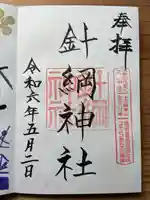 奉拝
針綱神社
令和六年五月二日